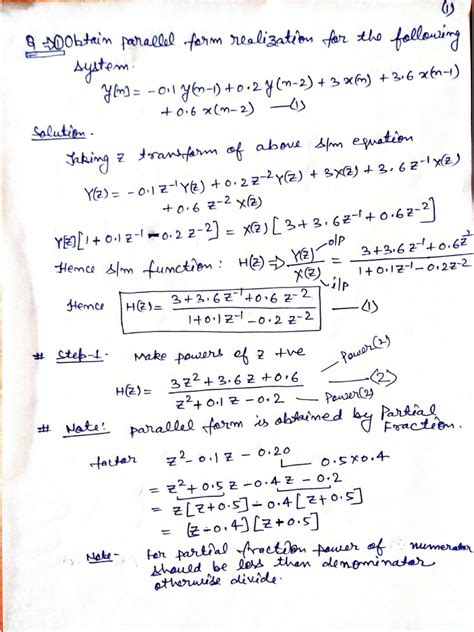 (1)
Q ⇒ (1) Obtain parallel form realization for the following
system.
y[n] = -0.1 y(n-1) + 0.2 y(n-2) + 3 x(n) + 3.6 x(n-1)
+ 0.6 x(n-2) —(1)
Solution.
Taking z transform of above s/m equation
Y(z) = -0.1 z⁻¹ Y(z) + 0.2 z⁻² Y(z) + 3X(z) + 3.6 z⁻¹ X(z)
+ 0.6 z⁻² X(z)
Y(z)[1 + 0.1 z⁻¹ - 0.2 z⁻²] = X(z) [3 + 3.6 z⁻¹ + 0.6 z⁻²]
Hence s/m function: H(z) ⇒ Y(z) → o/p / X(z) → i/p = 3 + 3.6 z⁻¹ + 0.6 z⁻² / 1 + 0.1 z⁻¹ - 0.2 z⁻²
Hence H(z) = 3 + 3.6 z⁻¹ + 0.6 z⁻² / 1 + 0.1 z⁻¹ - 0.2 z⁻² —(1)
# Step-1. Make powers of z +ve
H(z) = 3z² + 3.6 z + 0.6 / z² + 0.1 z - 0.2 —(2)
Power(2)
Power(2)
# Note: parallel form is obtained by Partial
Fraction.
factor z² - 0.1 z - 0.20
0.5 x 0.4
= z² + 0.5 z - 0.4 z - 0.2
= z[z + 0.5] - 0.4 [z + 0.5]
= [z - 0.4] [z + 0.5]
Note- For partial fraction power of numerator
should be less than denominator
otherwise divide.